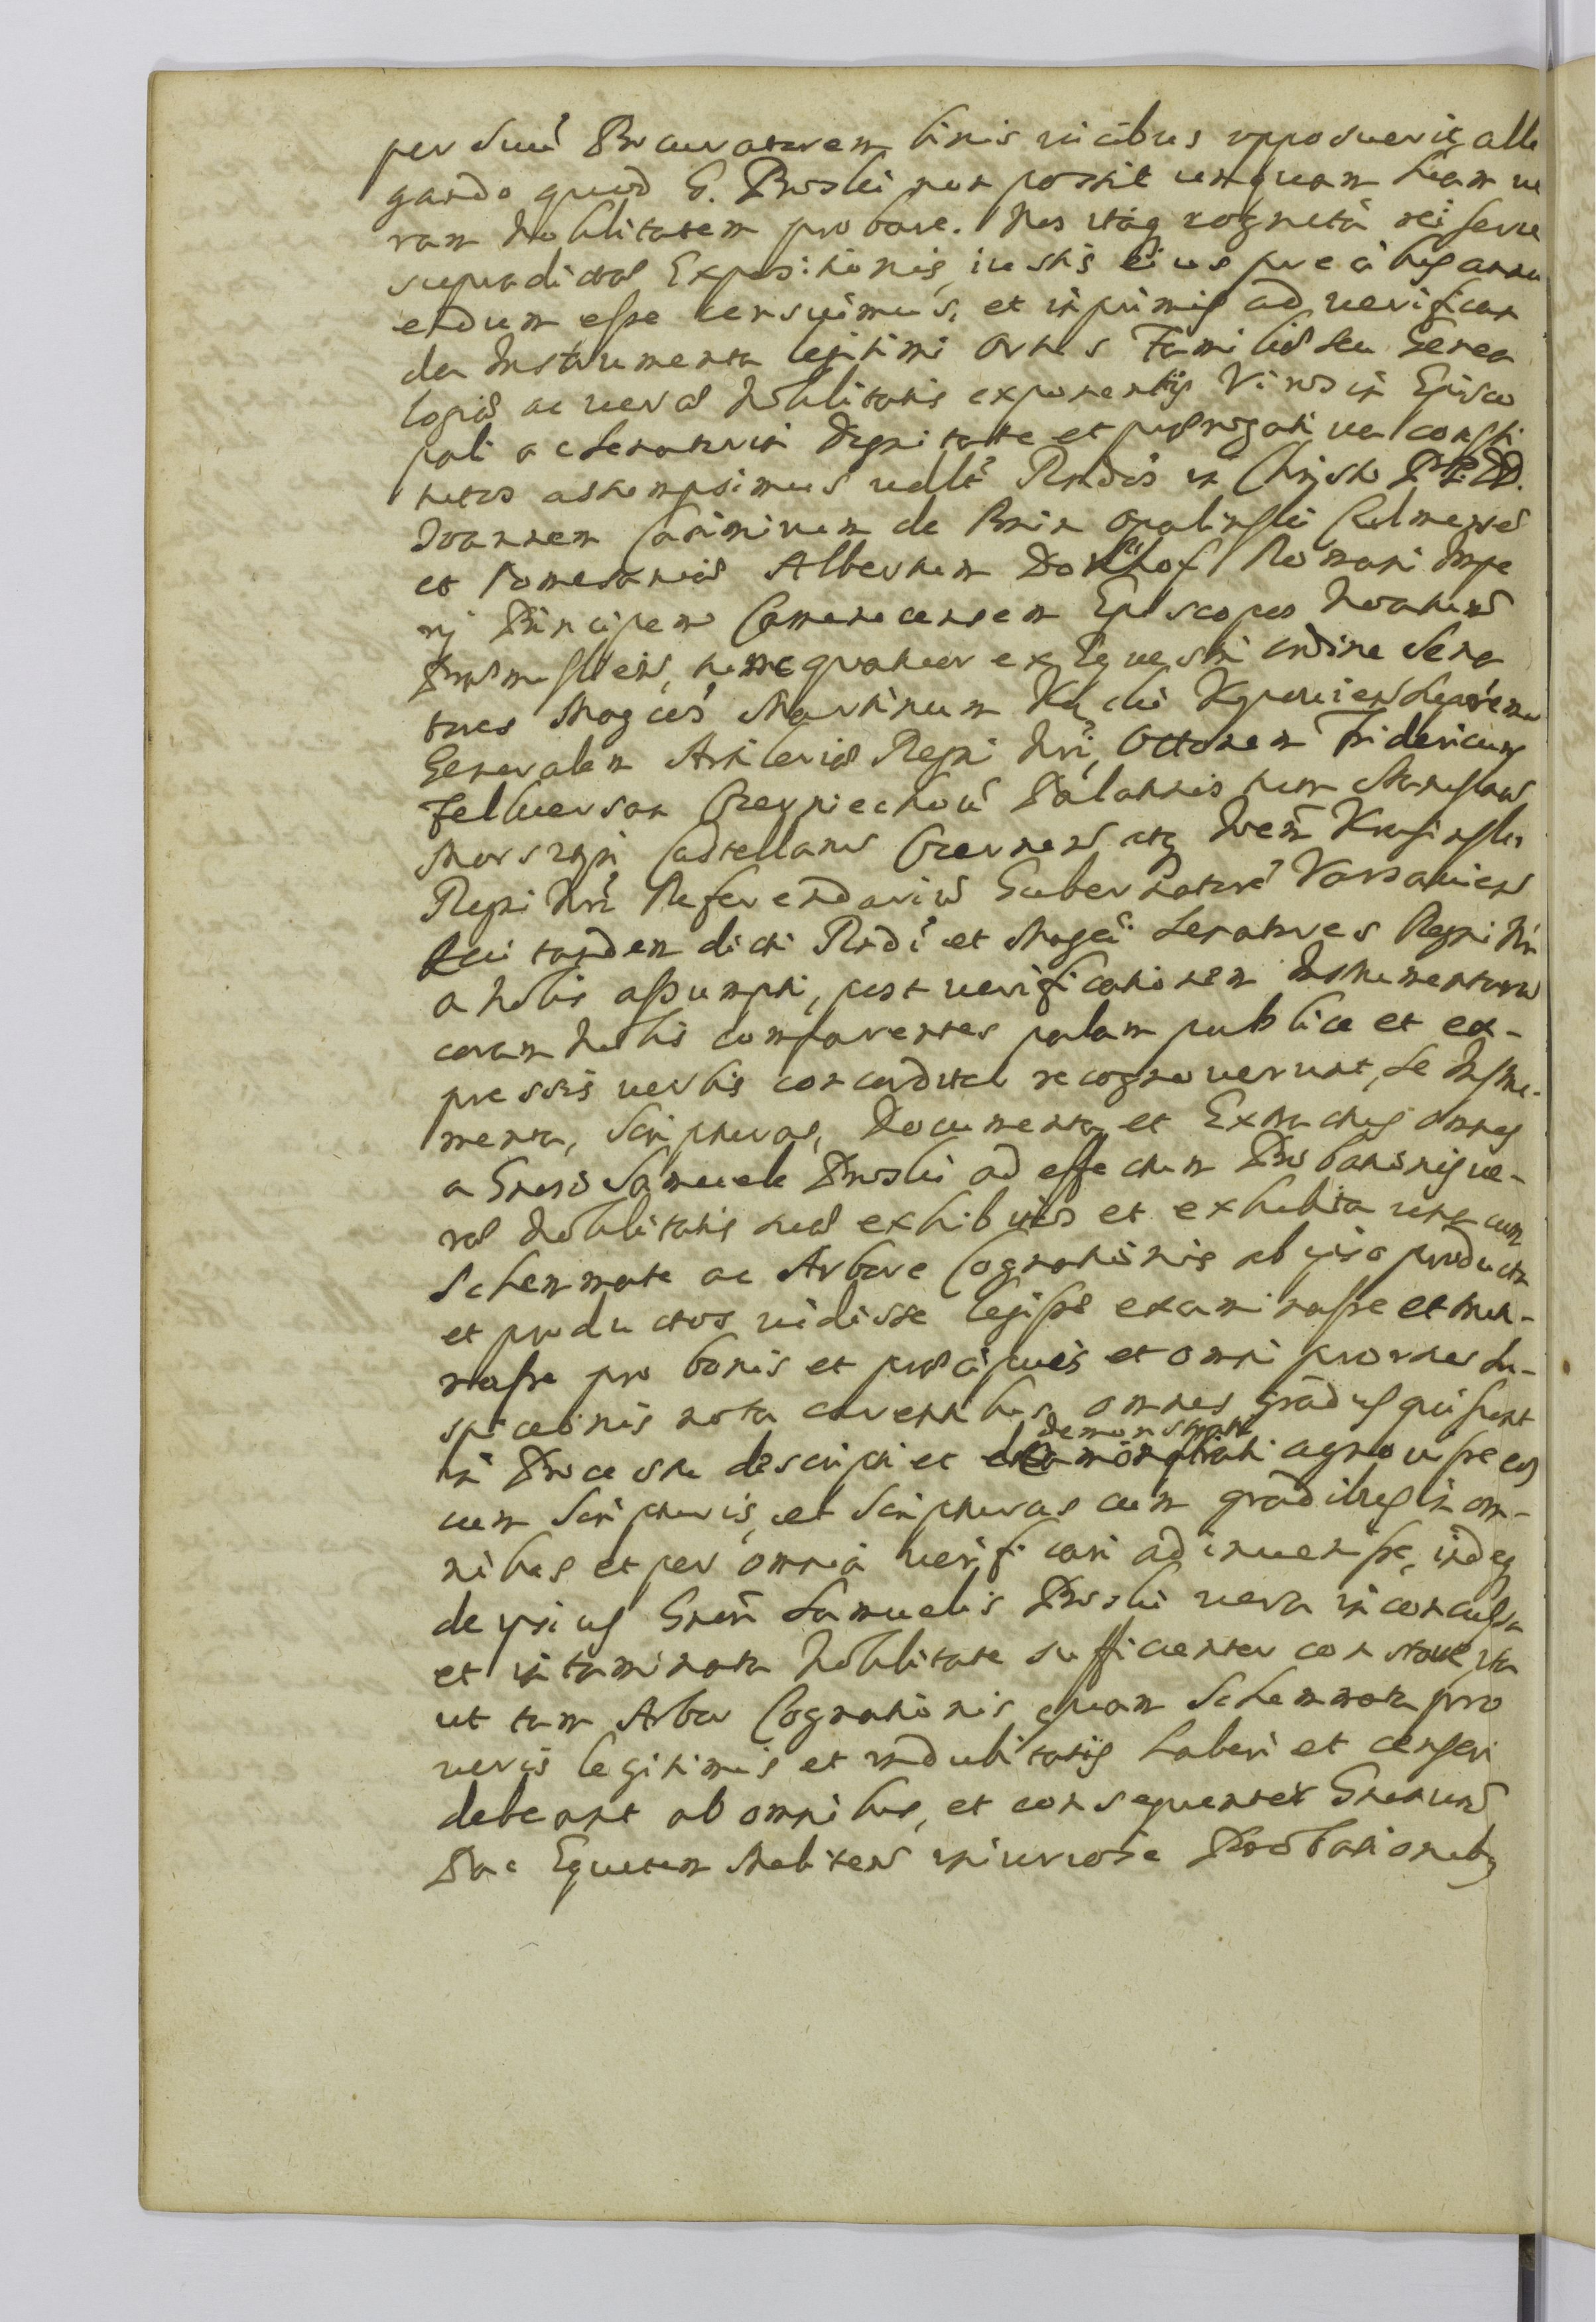 per suu Procuratorem binis vicibus opposuerit alle
gando quod G. Proski non possit unquam suam ve
ram Nobilitatem probare. Nos itaq cognita rei serie
supradictae Expositionis, iustis eius precibus annu
endum esse censuimus, et inprimis ad verifican
da Instrumenta legitimi Ortus Familiae seu Genea
logiae ac verae Nobilitatis exponentis Viros in Episco
pali ac Senatoria Dignitate et praerogativa consti
tutos assumpsimus Rndos in Christo
Joannem Casimirum de Bnin Opalinski Culmensem
et Pomesaniae Albertum Donhof Romani Impe
rij Principem Camenecensem Episcopos Noatum
tum quatuor ex Equestri ordine Sena
tores Magcos Martinum Kącki Kyoviensem
Generalem Artileriae Regni Nri, Ottonem Fridericum
Felkerson Czerniechoui Palatinos tum Stanislaum
Morsztyn Castellanum Czernen atq Joem Krasinski
Regni Nri Referendarium Gubernatore Varsavien
Qui tandem dicti Rndi et Magci Senatores Regni Nri
a Nobis assumpti, post verificationem Instrumentorum
coram Nobis comparentes palam publice et ex-
pressis verbis concorditer recognoverunt, se Instru-
menta, Scripturas, Documenta et Extractus omnes
a Gnoso Samuele Proski ad effectum Probationis ve-
rae Nobilitatis suae exhibitos et exhibita una cum
Schemmate ac Arbore Cognationis ab ipso producta
et productos vidisse legisse examinasse et trut-
nasse pro bonis et praecipuis et omni prorsus su-
spicionis nota carentibus, omnes gradus qui sunt
in Processu descripti et demonstrati agnovisse eos
cum Scripturis, et Scripturas cum gradibus in om-
nibus et per omnia verificari adinvenisse, indeq
de ipsius Gnosi Samuelis Proski vera inconcussa
et intaminata Nobilitate sufficienter constare, ita
ut tam Arbor Cognationis quam Schemmata pro
veris legitimis et indubitatis haberi et censeri
debeant ab omnibus, et consequenter Gnosum
Equitem Melitens iniuriose Probationibus